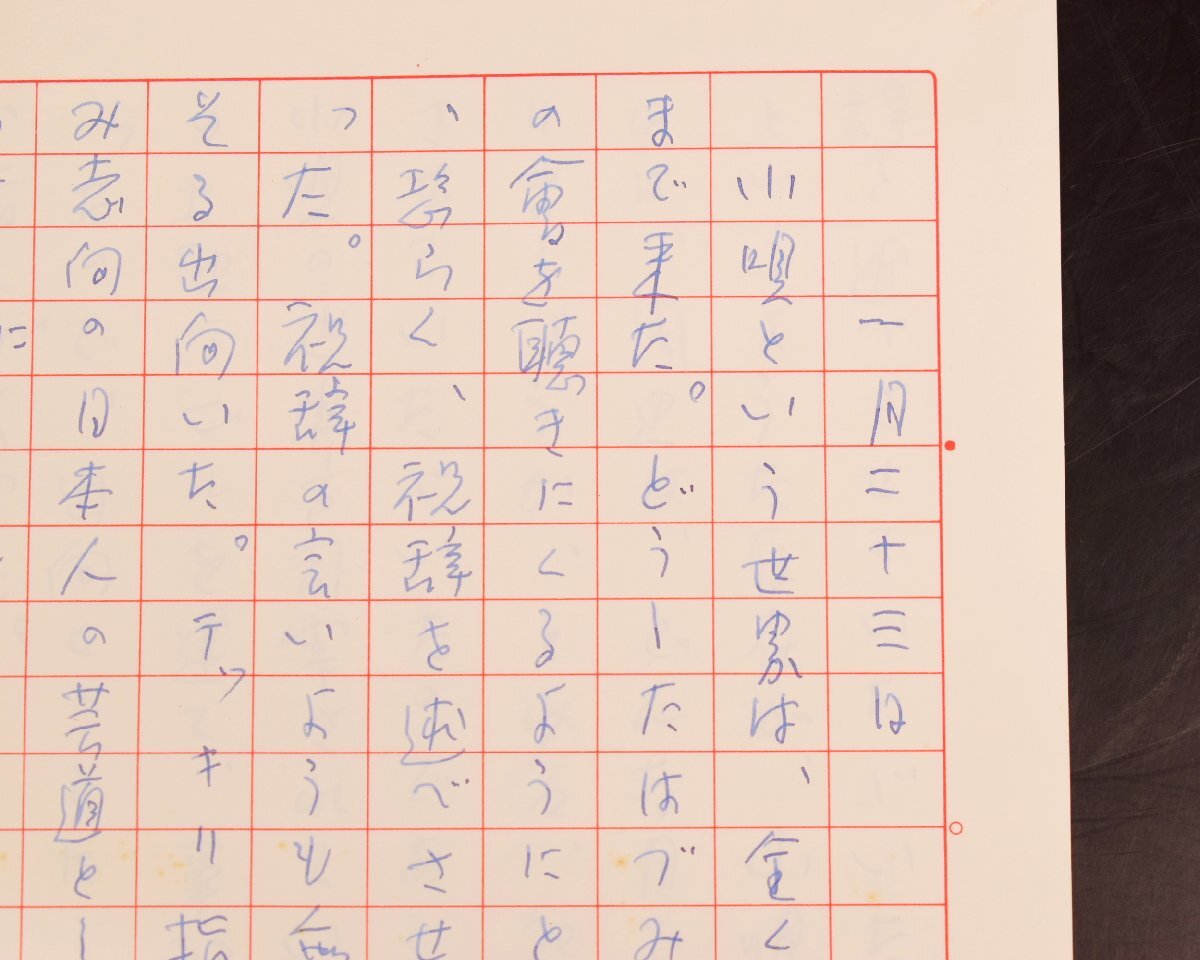 一月二十三日
小唄という世界は、全く
まで来た。どうしたはづみ
の會を聴きにくるようにと
、恐らく、祝辞を述べさせ
った。祝辞の言いようも無
そる出向いた。テッキリ指
み志向の日本人の芸道とし
に